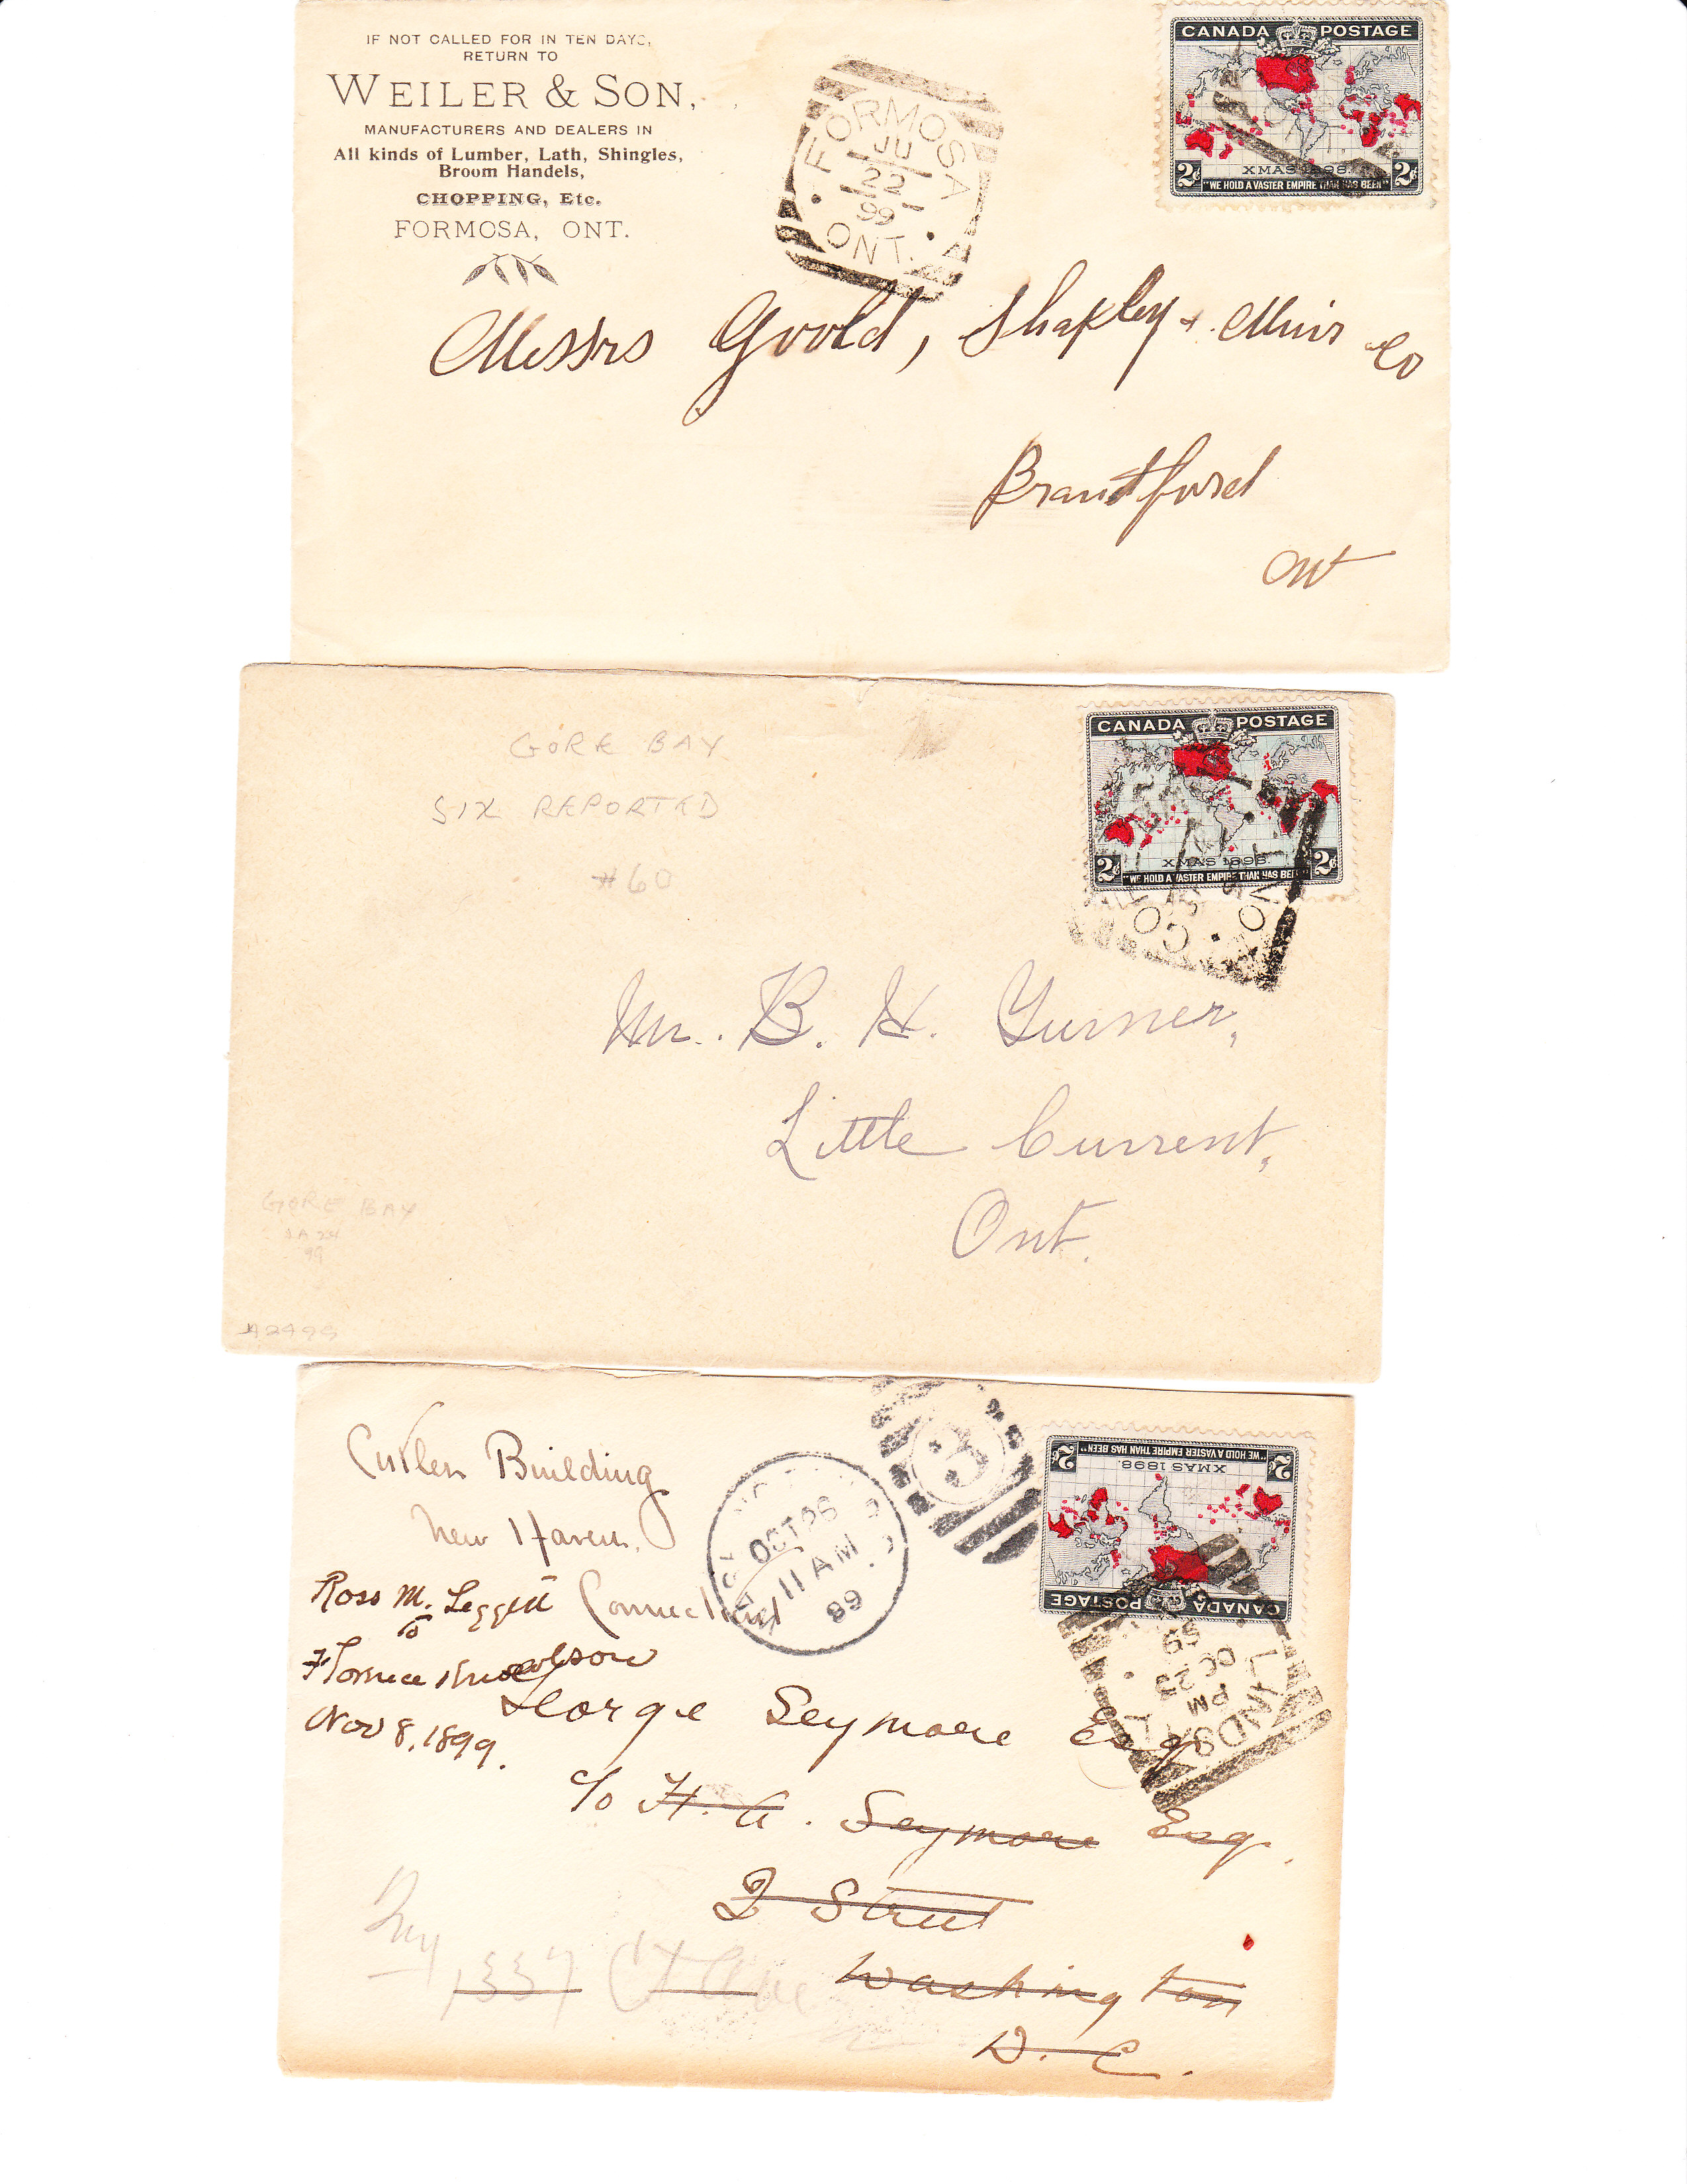 IF NOT CALLED FOR IN TEN DAYS,
RETURN TO
WEILER & SON,
MANUFACTURERS AND DEALERS IN
All kinds of Lumber, Lath, Shingles,
Broom Handels,
CHOPPING, Etc.
FORMOSA, ONT.
FORMOSA
JU
22
99
ONT.
CANADA POSTAGE
2¢ XMAS 1898. 2¢
"WE HOLD A VASTER EMPIRE THAN HAS BEEN"
Messrs Goold, Shapley & Muir Co
Brantford
Ont
GORE BAY
SIX REPORTED
#60
CANADA POSTAGE
2¢ XMAS 1898. 2¢
"WE HOLD A VASTER EMPIRE THAN HAS BEEN"
GO
ONT
Mr. B. H. Turner,
Little Current,
Ont.
GORE BAY
JA 24
99
A2499
Cutler Building
New Haven,
Connecticut
Ross M. Leggett
to
Florence
Nov 8, 1899.
OCT 26
11 AM
99
3
CANADA POSTAGE
2¢ XMAS 1898. 2¢
"WE HOLD A VASTER EMPIRE THAN HAS BEEN"
LINDSAY
PM
OC 23
99
George Seymore Esq
c/o H. A. Seymore Esq.
Street
Washington
D. C.
Try
1337